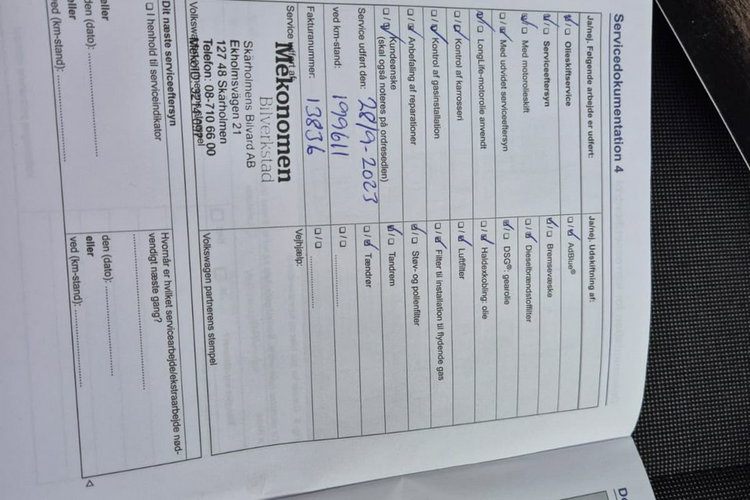 Servicedokumentation 4
Ja/nej. Følgende arbejde er udført:
☑/☐ Olieskiftservice
☑/☐ Serviceeftersyn
☑/☐ Med motorolieskift
☐/☑ Med udvidet serviceeftersyn
☑/☐ LongLife-motorolie anvendt
☐/☑ Kontrol af karrosseri
☐/☑ Kontrol af gasinstallation
☐/☑ Anbefaling af reparationer
☐/☑ Kundeønske
(skal også noteres på ordresedlen)
Service udført den: 28/9-2023
ved km-stand: 199611
Fakturanummer: 13836
Service
Mekonomen
Bilverkstad
Skärholmens Bilvård AB
Ekholmsvägen 21
127 48 Skärholmen
Telefon: 08-710 66 00
Ja/nej. Udskiftning af:
☐/☑ AdBlue®
☑/☐ Bremsevæske
☐/☑ Dieselbrændstoffilter
☑/☐ DSG®: gearolie
☐/☑ Haldexkobling: olie
☐/☑ Luftfilter
☐/☑ Filter til installation til flydende gas
☑/☐ Støv- og pollenfilter
☑/☐ Tandrem
☐/☑ Tændrør
☐/☐
☐/☐
Vejhjælp:
Volkswagen partnerens stempel
Dit næste serviceeftersyn
☐ I henhold til serviceindikator
eller
den (dato):
eller
ved (km-stand):
Hvornår er hvilket servicearbejde/ekstraarbejde nød-
vendigt næste gang?
den (dato):
eller
ved (km-stand):